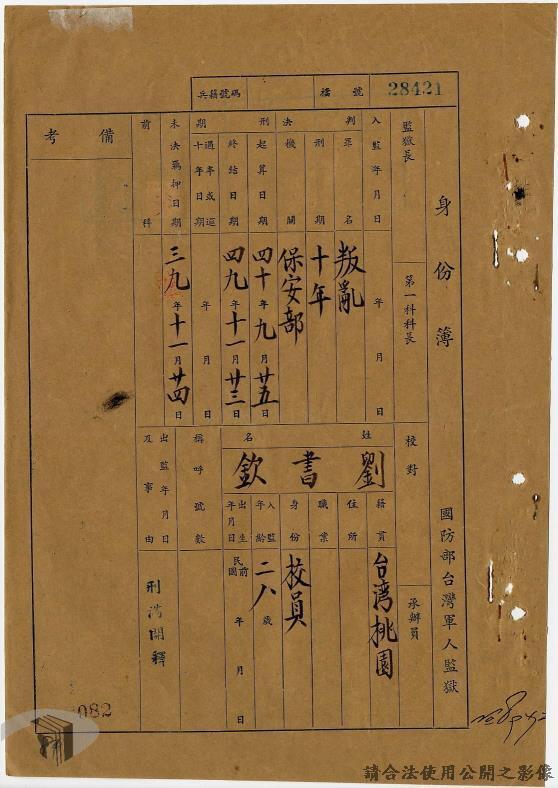 身份簿
國防部台灣軍人監獄
兵籍號碼
檔號 28421
監獄長
第一科科長
校對
承辦員
入監年月日 年 月 日
判決刑期
罪名 叛亂
刑期 十年
機關 保安部
起算日期 四十年九月廿五日
終結日期 四九年十一月廿三日
十年日期 年 月 日
未決羈押日期 三九年十一月廿四日
前科
備考
姓名 劉書欽
籍貫 台灣桃園
住所
職業
身份 校員
入監年齡 二八歲
出生年月日 民前國 年 月 日
稱呼號數
出監年月日及事由 刑滿開釋
082
請合法使用公開之影像